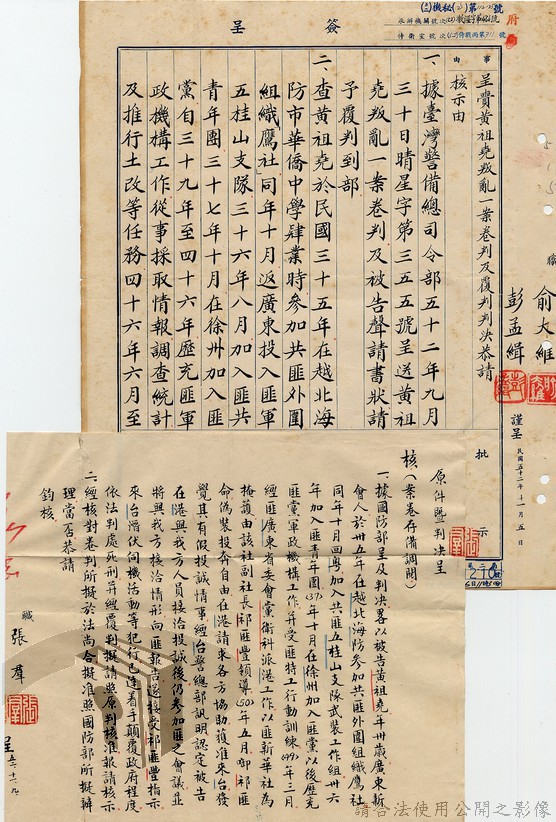 簽呈
府
事由
呈賫黃祖堯叛亂一案卷判及覆判判決恭請
核示由
一、據臺灣警備總司令部五十二年九月
三十日晴星字第三五五號呈送黃祖
堯叛亂一案卷判及被告聲請書狀請
予覆判到部
二、查黃祖堯於民國三十五年在越北海
防市華僑中學肄業時參加共匪外圍
組織鷹社同年十月返廣東投入匪軍
五桂山支隊三十六年八月加入匪共
青年團三十七年十月在徐州加入匪
黨自三十九年至四十六年歷充匪軍
政機構工作從事採取情報調查統計
及推行土改等任務四十六年六月至
職
俞大維
彭孟緝
謹呈
民國五十二年十一月五日
批示
原件暨判決呈
核(案卷存備調閱)
一、據國防部呈及判決各以被告黃祖堯年卅歲廣東新
會人於卅五年在越北海防參加共匪外圍組織鷹社
同年十月回粵加入共匪五桂山支隊武裝工作組卅六
年加入匪青年團(37)年十月在徐州加入匪黨以後歷充
匪黨軍政機構工作并受匪特工行動訓練(49)年三月
經匪廣東省委會黨衛科派港工作以匪新華社為
掩護由該社副社長祁匪豐領導(50)年五月啣祁匪
命偽裝投奔自由在港請求各方協助獲准來台發
覺其有假投誠情事經台警總部訊明認定被告
在港與我方人員接洽投誠後仍參加匪之會議並
將與我方接洽情形向匪報告遂接受祁匪豐指示
來台潛伏伺機活動等犯行已達着手顛覆政府程度
依法判處死刑并經覆判擬請照原判核准報請核示
二、經核對卷判所擬於法尚合擬准照國防部所擬辦
理當否恭請
鈞核
職
張羣
呈
請合法使用公開之影像